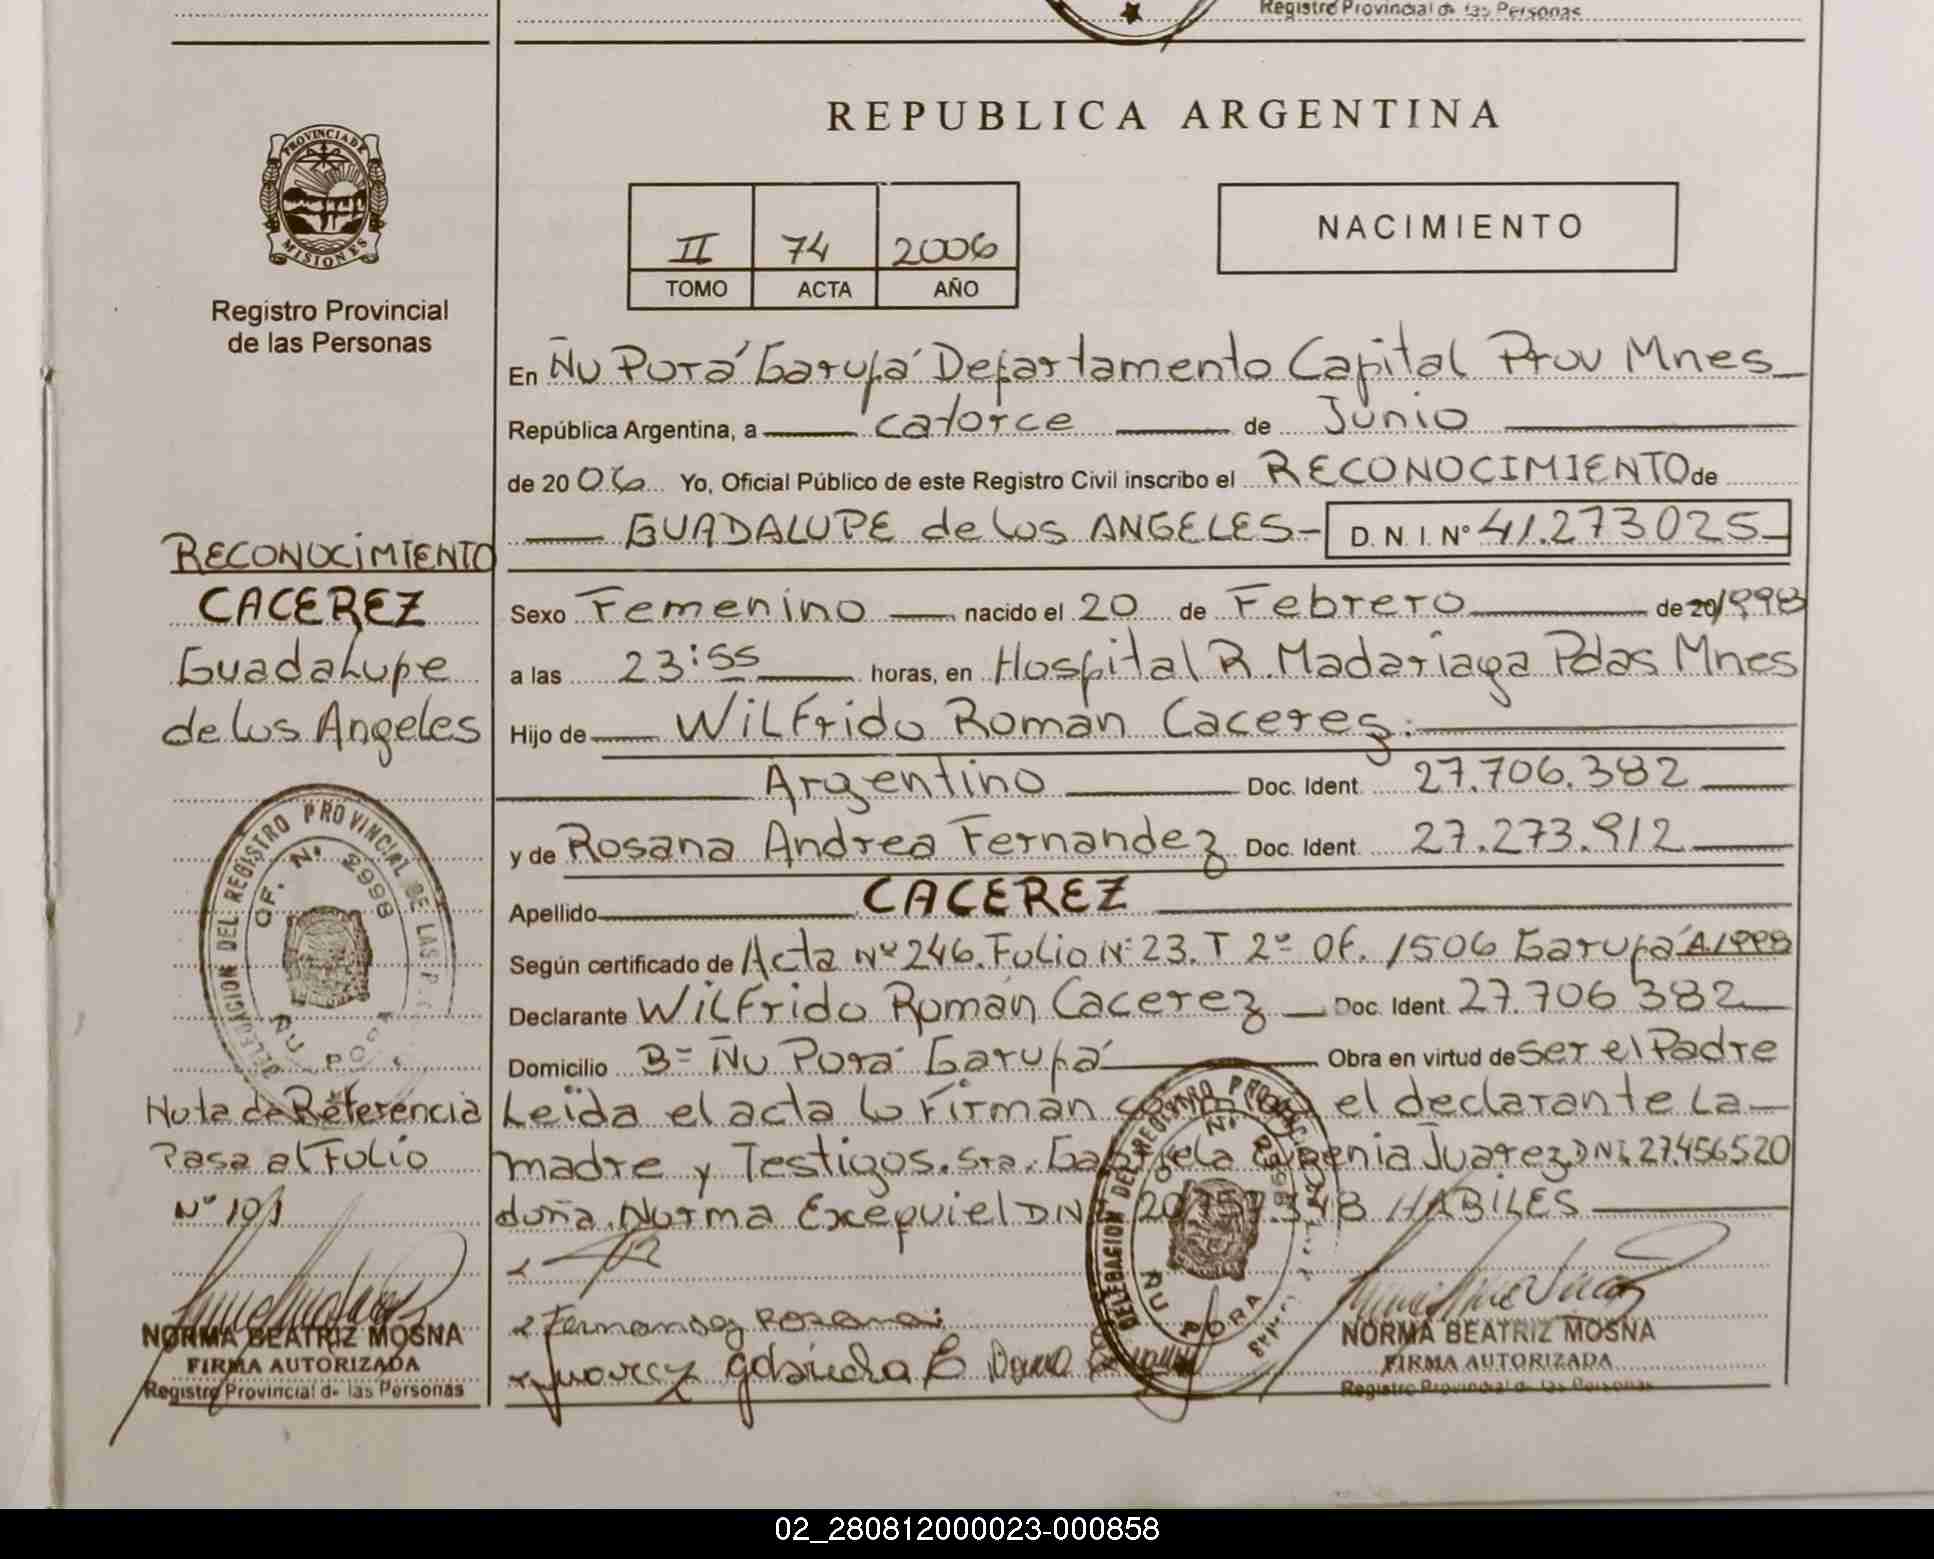 Registro Provincial de las Personas
PROVINCIA DE
MISIONES
Registro Provincial
de las Personas
REPUBLICA ARGENTINA
II 74 2006
TOMO ACTA AÑO
NACIMIENTO
En Ñu Porá Garupá Departamento Capital Prov Mnes
República Argentina, a catorce de Junio
de 20 06 Yo, Oficial Público de este Registro Civil inscribo el RECONOCIMIENTO de
GUADALUPE de los ANGELES- D. N. I. Nº 41.273025
Sexo Femenino nacido el 20 de Febrero de 20/1998
a las 23:55 horas, en Hospital R. Madariaga Pdas Mnes
Hijo de Wilfrido Román Caceres.
Argentino Doc. Ident. 27.706.382
y de Rosana Andrea Fernandez Doc. Ident. 27.273.912
Apellido CACEREZ
Según certificado de Acta Nº 246. Folio Nº 23. T 2º Of. 1506 Garupá A/1998
Declarante Wilfrido Román Cacerez Doc. Ident. 27.706 382
Domicilio Bº Ñu Porá Garupá Obra en virtud de ser el Padre
Leída el acta lo Firman el declarante La
madre y Testigos. Sra. Gabriela Eugenia Juarez DNI. 27.456520
doña Norma Exequiel DNI HABILES
Fernandez Rosana
Juarez Gabriela E
NORMA BEATRIZ MOSNA
FIRMA AUTORIZADA
Registro Provincial de las Personas
RECONOCIMIENTO
CACEREZ
Guadalupe
de los Angeles
DELEGACION DEL REGISTRO PROVINCIAL DE LAS P.
OF. Nº 2998
ÑU PORA
Nota de Referencia
Pasa al Folio
Nº 101
NORMA BEATRIZ MOSNA
FIRMA AUTORIZADA
Registro Provincial de las Personas
DELEGACION DEL REGISTRO
ÑU PORA
02_280812000023-000858